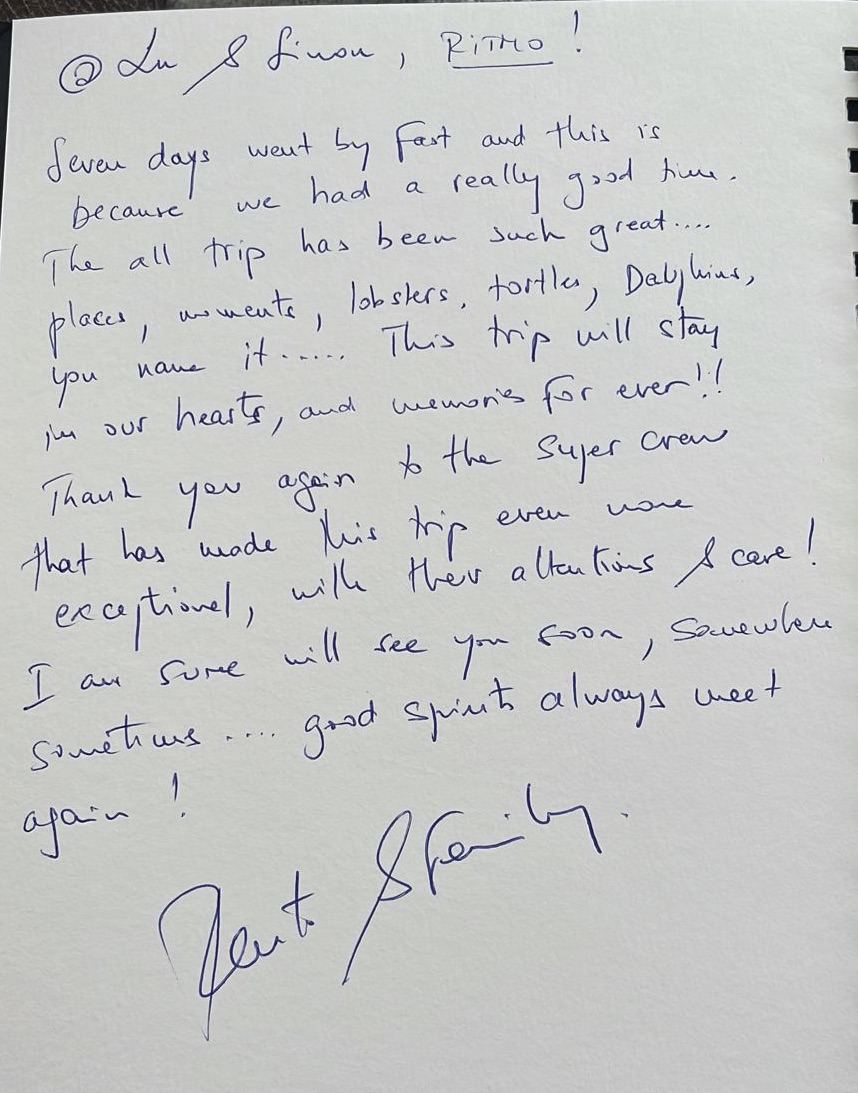 @ Lu & Simon, RITMO!
Seven days went by fast and this is
because we had a really good time.
The all trip has been such great....
places, moments, lobsters, tortles, Dalphins,
you name it...... This trip will stay
in our hearts, and memories for ever!!
Thank you again to the super crew
that has made this trip even more
exceptional, with their attentions & care!
I am sure will see you soon, somewhere
sometimes .... good spirits always meet
again!
& Family.